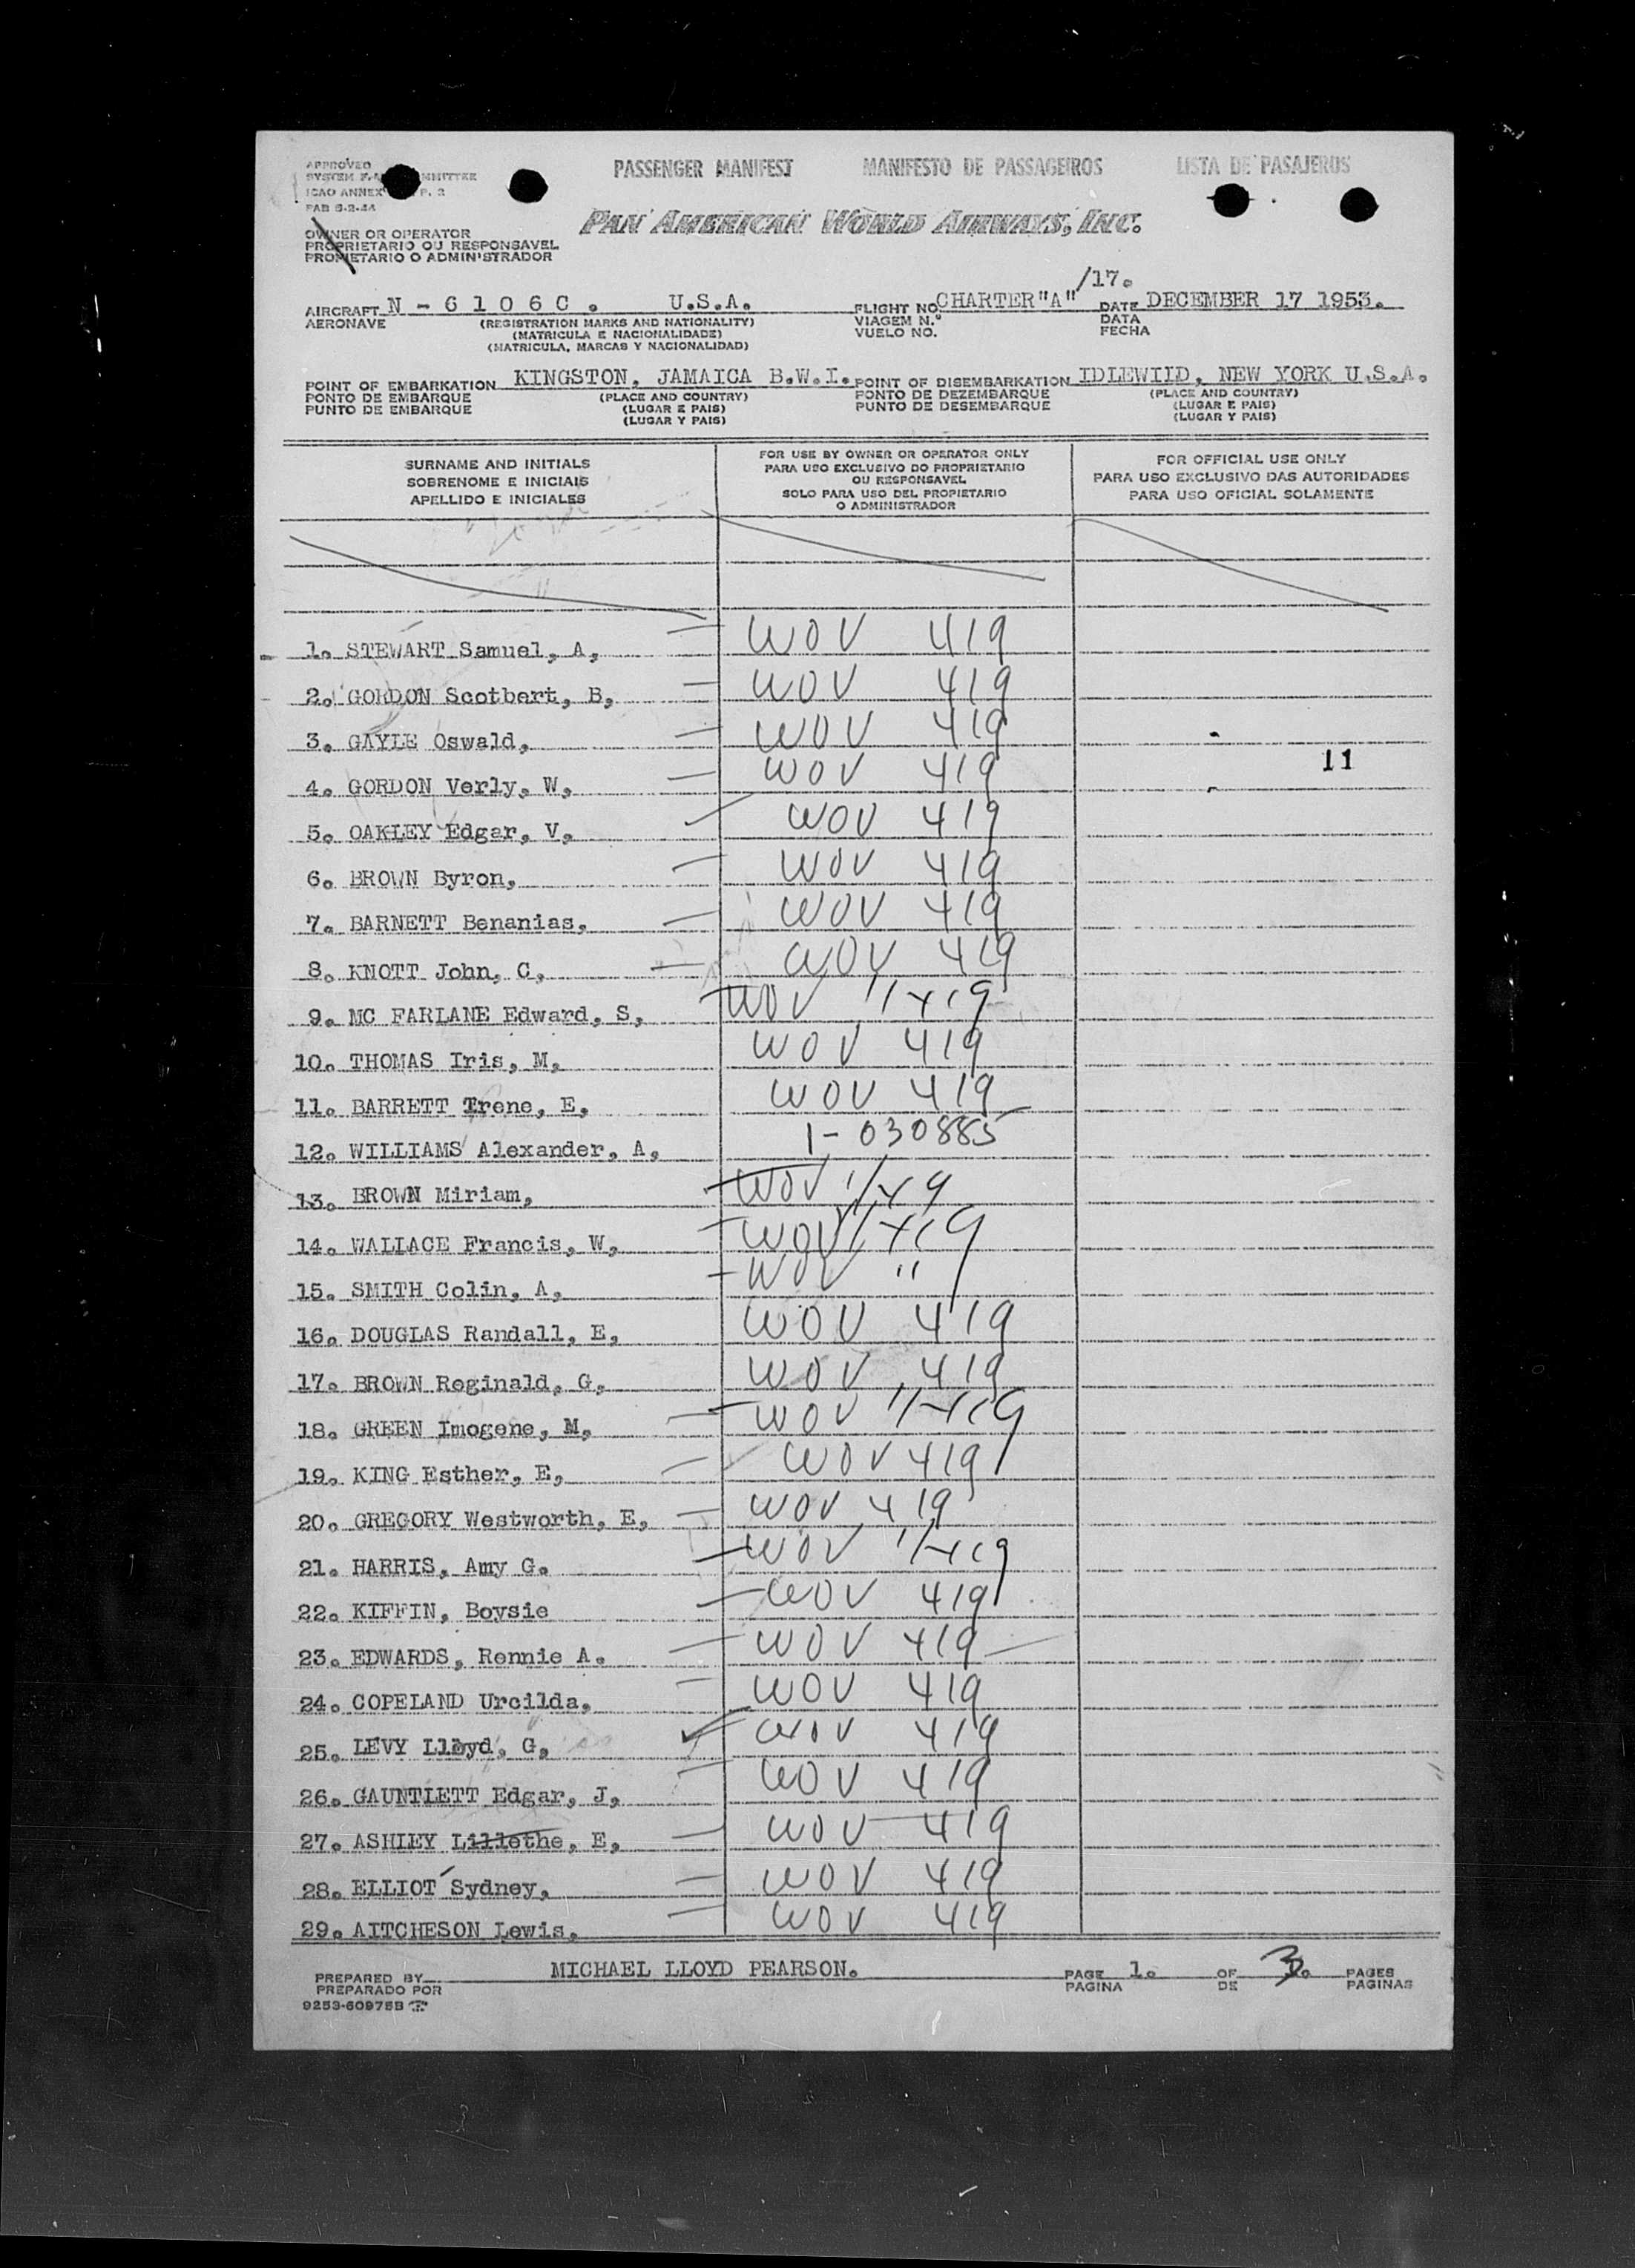 PASSENGER MANIFEST MANIFESTO DE PASSAGEIROS LISTA DE PASAJEROS
APPROVED
SYSTEM
ICAO ANNEX P. 2
PAB 5-2-44
PAN AMERICAN WORLD AIRWAYS, INC.
OWNER OR OPERATOR
PROPRIETARIO OU RESPONSAVEL
PROPIETARIO O ADMINISTRADOR
/17.
AIRCRAFT N - 6 1 0 6 C . U.S.A. FLIGHT NO. CHARTER "A" DATE DECEMBER 17 1953.
AERONAVE (REGISTRATION MARKS AND NATIONALITY) VIAGEM N.º DATA
(MATRICULA E NACIONALIDADE) VUELO NO. FECHA
(MATRICULA, MARCAS Y NACIONALIDAD)
POINT OF EMBARKATION KINGSTON, JAMAICA B.W.I. POINT OF DISEMBARKATION IDLEWIID, NEW YORK U.S.A.
PONTO DE EMBARQUE (PLACE AND COUNTRY) PONTO DE DEZEMBARQUE (PLACE AND COUNTRY)
PUNTO DE EMBARQUE (LUGAR E PAIS) PUNTO DE DESEMBARQUE (LUGAR E PAIS)
(LUGAR Y PAIS) (LUGAR Y PAIS)
SURNAME AND INITIALS
SOBRENOME E INICIAIS
APELLIDO E INICIALES
FOR USE BY OWNER OR OPERATOR ONLY
PARA USO EXCLUSIVO DO PROPRIETARIO
OU RESPONSAVEL
SOLO PARA USO DEL PROPIETARIO
O ADMINISTRADOR
FOR OFFICIAL USE ONLY
PARA USO EXCLUSIVO DAS AUTORIDADES
PARA USO OFICIAL SOLAMENTE
1. STEWART Samuel, A, WOV 419
2. GORDON Scotbert, B, WOV 419
3. GAYLE Oswald, WOV 419
4. GORDON Verly, W, WOV 419 11
5. OAKLEY Edgar, V, WOV 419
6. BROWN Byron, WOV 419
7. BARNETT Benanias, WOV 419
8. KNOTT John, C, WOV 419
9. MC FARLANE Edward, S, WOV 419
10. THOMAS Iris, M, WOV 419
11. BARRETT Irene, E, WOV 419
12. WILLIAMS Alexander, A, 1-030885
13. BROWN Miriam, WOV
14. WALLACE Francis, W, WOV 419
15. SMITH Colin, A, WOV "
16. DOUGLAS Randall, E, WOV 419
17. BROWN Reginald, G, WOV 419
18. GREEN Imogene, M, WOV 419
19. KING Esther, E, WOV 419
20. GREGORY Westworth, E, WOV 419
21. HARRIS, Amy G. WOV 419
22. KIFFIN, Boysie WOV 419
23. EDWARDS, Rennie A. WOV 419
24. COPELAND Urcilda, WOV 419
25. LEVY Lloyd, G, WOV 419
26. GAUNTLETT Edgar, J, WOV 419
27. ASHLEY Lillethe, E, WOV 419
28. ELLIOT Sydney, WOV 419
29. AITCHESON Lewis. WOV 419
PREPARED BY MICHAEL LLOYD PEARSON. PAGE 1. OF 3. PAGES
PREPARADO POR PAGINA DE PAGINAS
9253-60975B